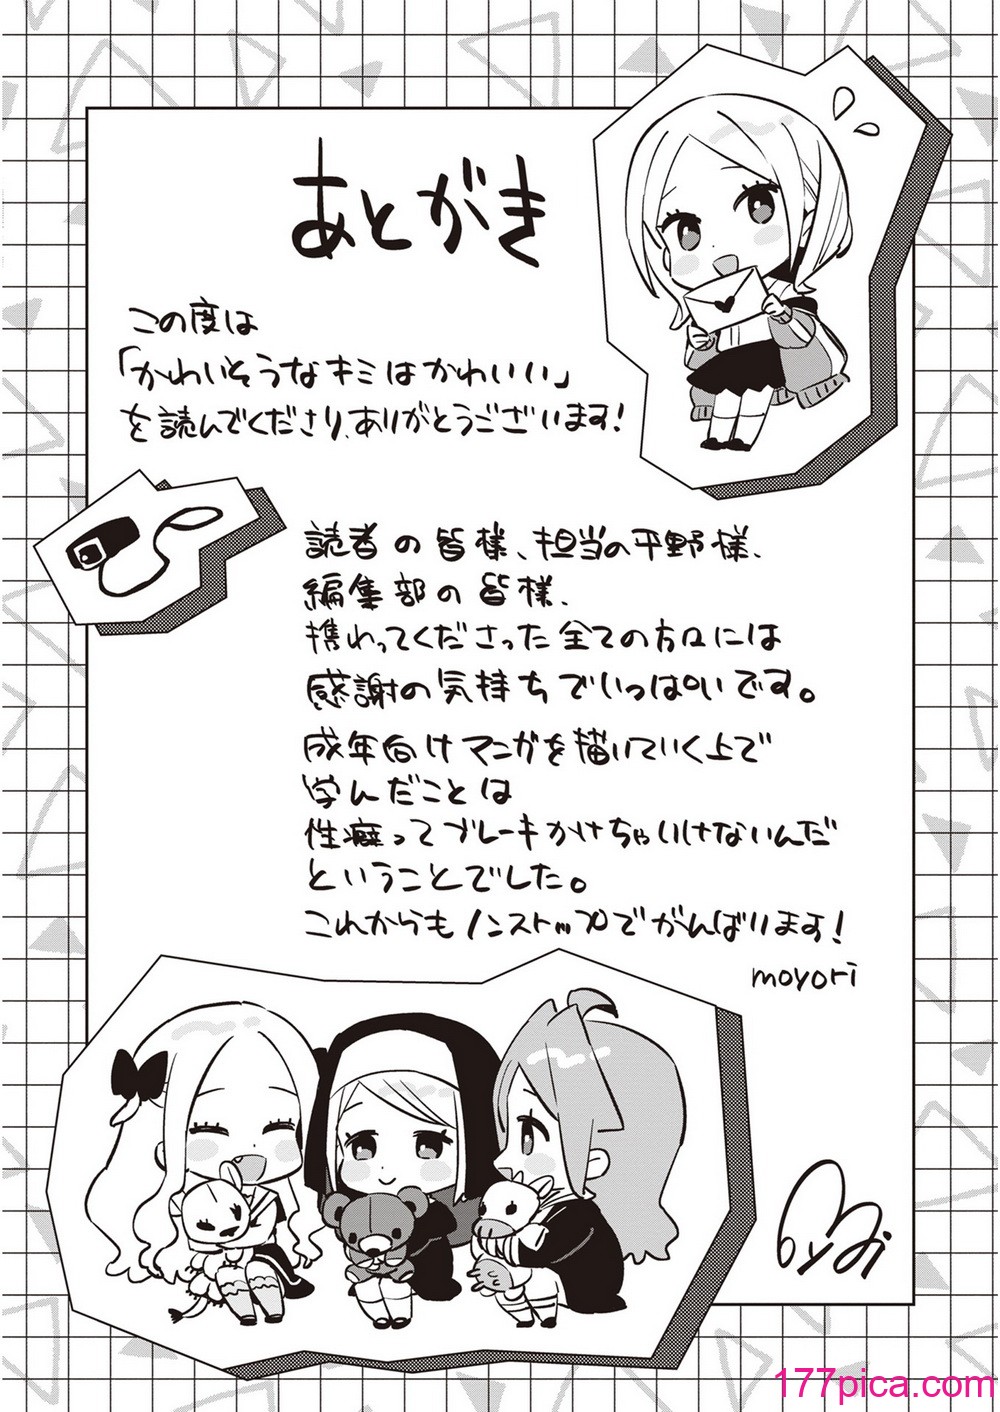 あとがき
この度は
「かわいそうなキミはかわいい」
を読んでくださり、ありがとうございます！
読者の皆様、担当の平野様、
編集部の皆様、
携わってくださった全ての方々には
感謝の気持ちでいっぱいです。
成年向けマンガを描いていく上で
学んだことは
性癖ってブレーキかけちゃいけないんだ
ということでした。
これからもノンストップでがんばります！
moyori
177pica.com